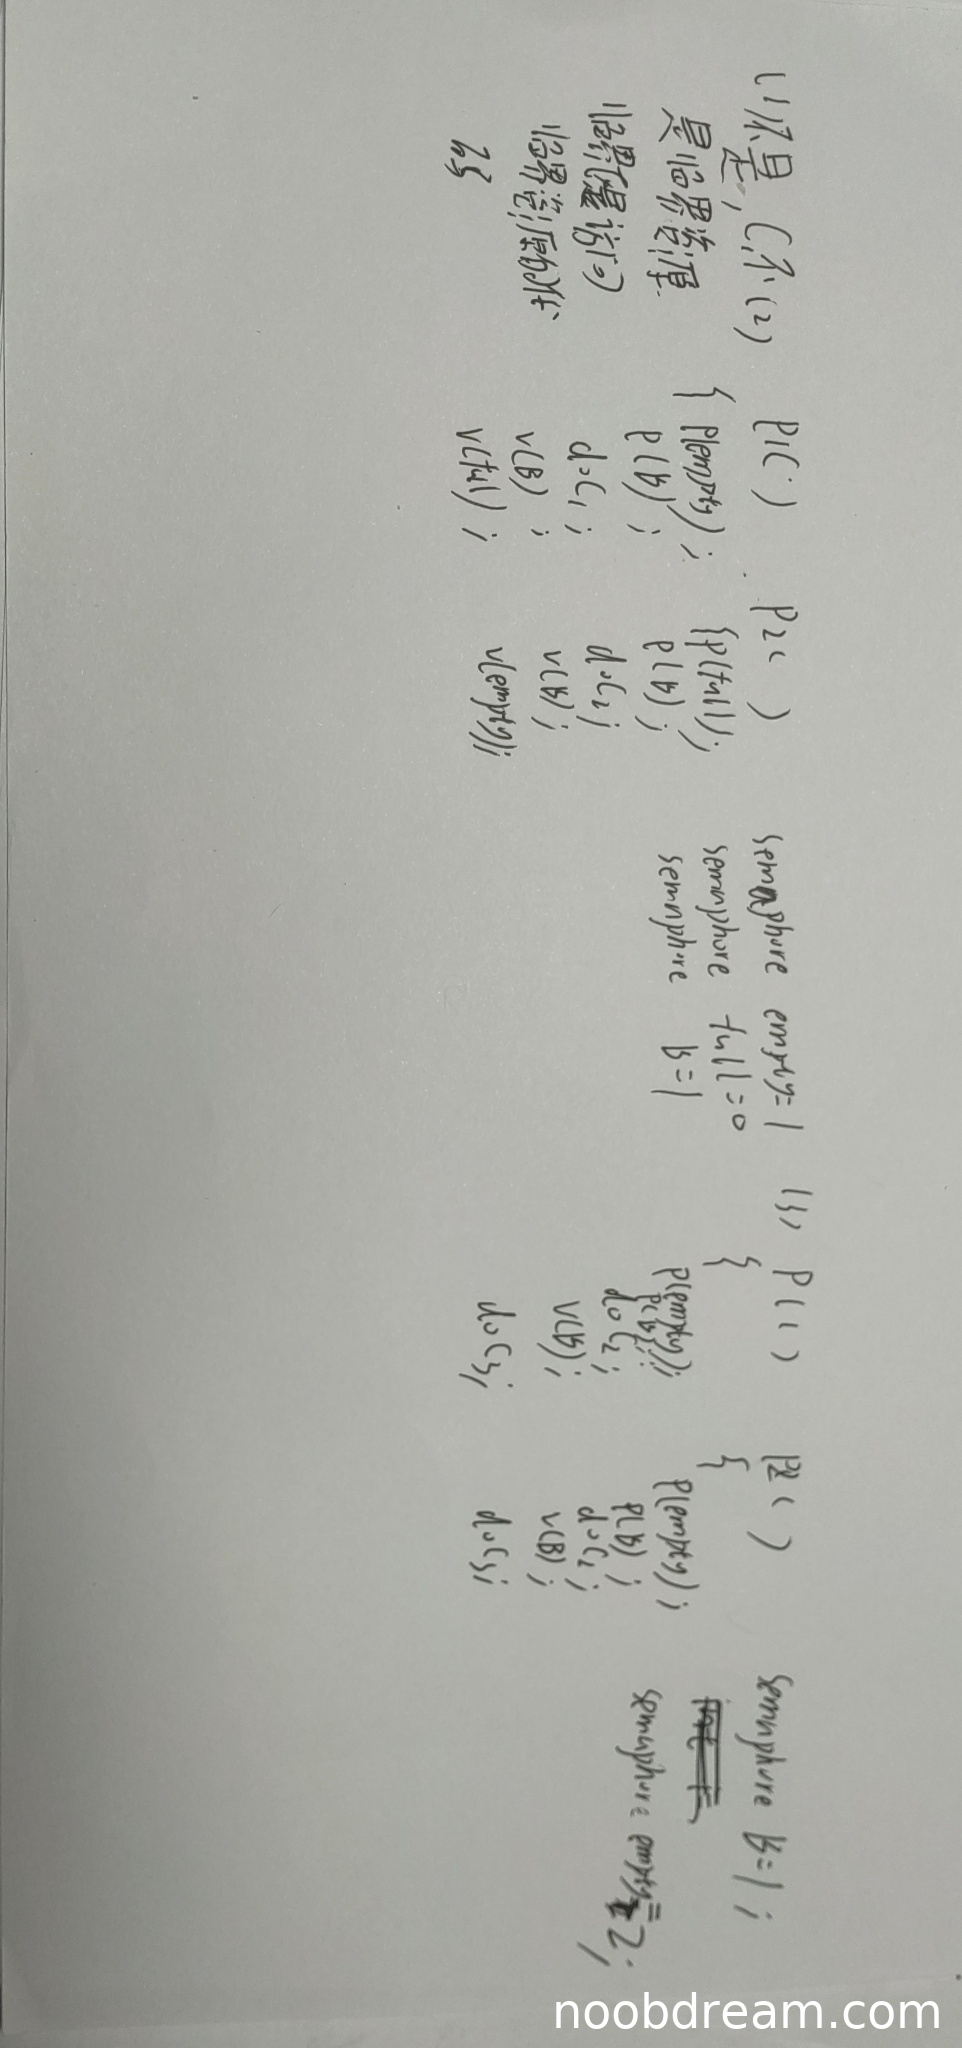 (1)是, C不
是临界资源
临界区是访问
临界资源的代
码
(2)
P1( )
{
P(empty);
P(B);
do C1;
V(B);
V(full);
P2( )
{P(full);
P(B);
do C2;
V(B);
V(empty);
semaphore empty=1
semaphore full=0
semaphore B=1
(3)
P1( )
{
P(empty);
P(B);
do C2;
V(B);
do C3;
P2( )
{
P(empty);
P(B);
do C2;
V(B);
do C3;
semaphore B=1;
semaphore empty=2;
noobdream.com